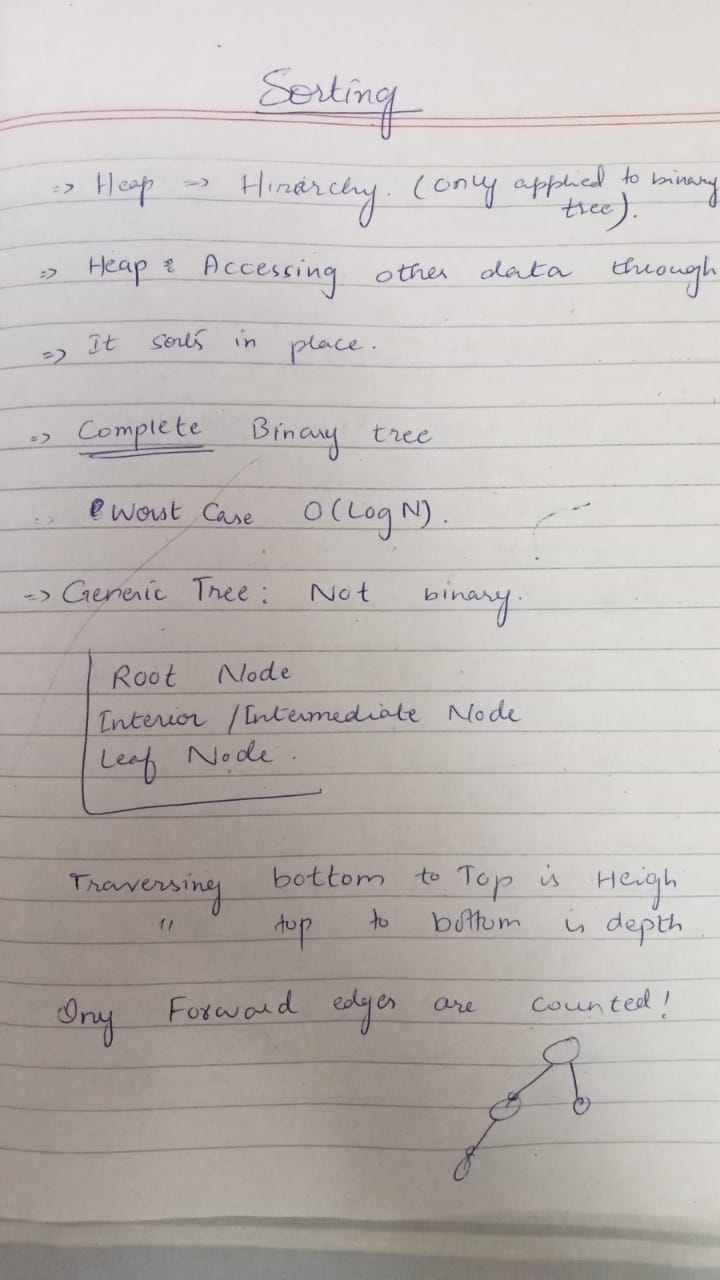 Sorting
=> Heap -> Hirarchy. (only applied to binary
tree).
=> Heap : Accessing other data through
=> It sorts in place.
=> Complete Binary tree
Worst Case O(Log N).
=> Generic Tree : Not binary.
Root Node
Interior / Intermediate Node
Leaf Node.
Traversing bottom to Top is Heigh
" top to bottom is depth
Ony Forward edges are counted!